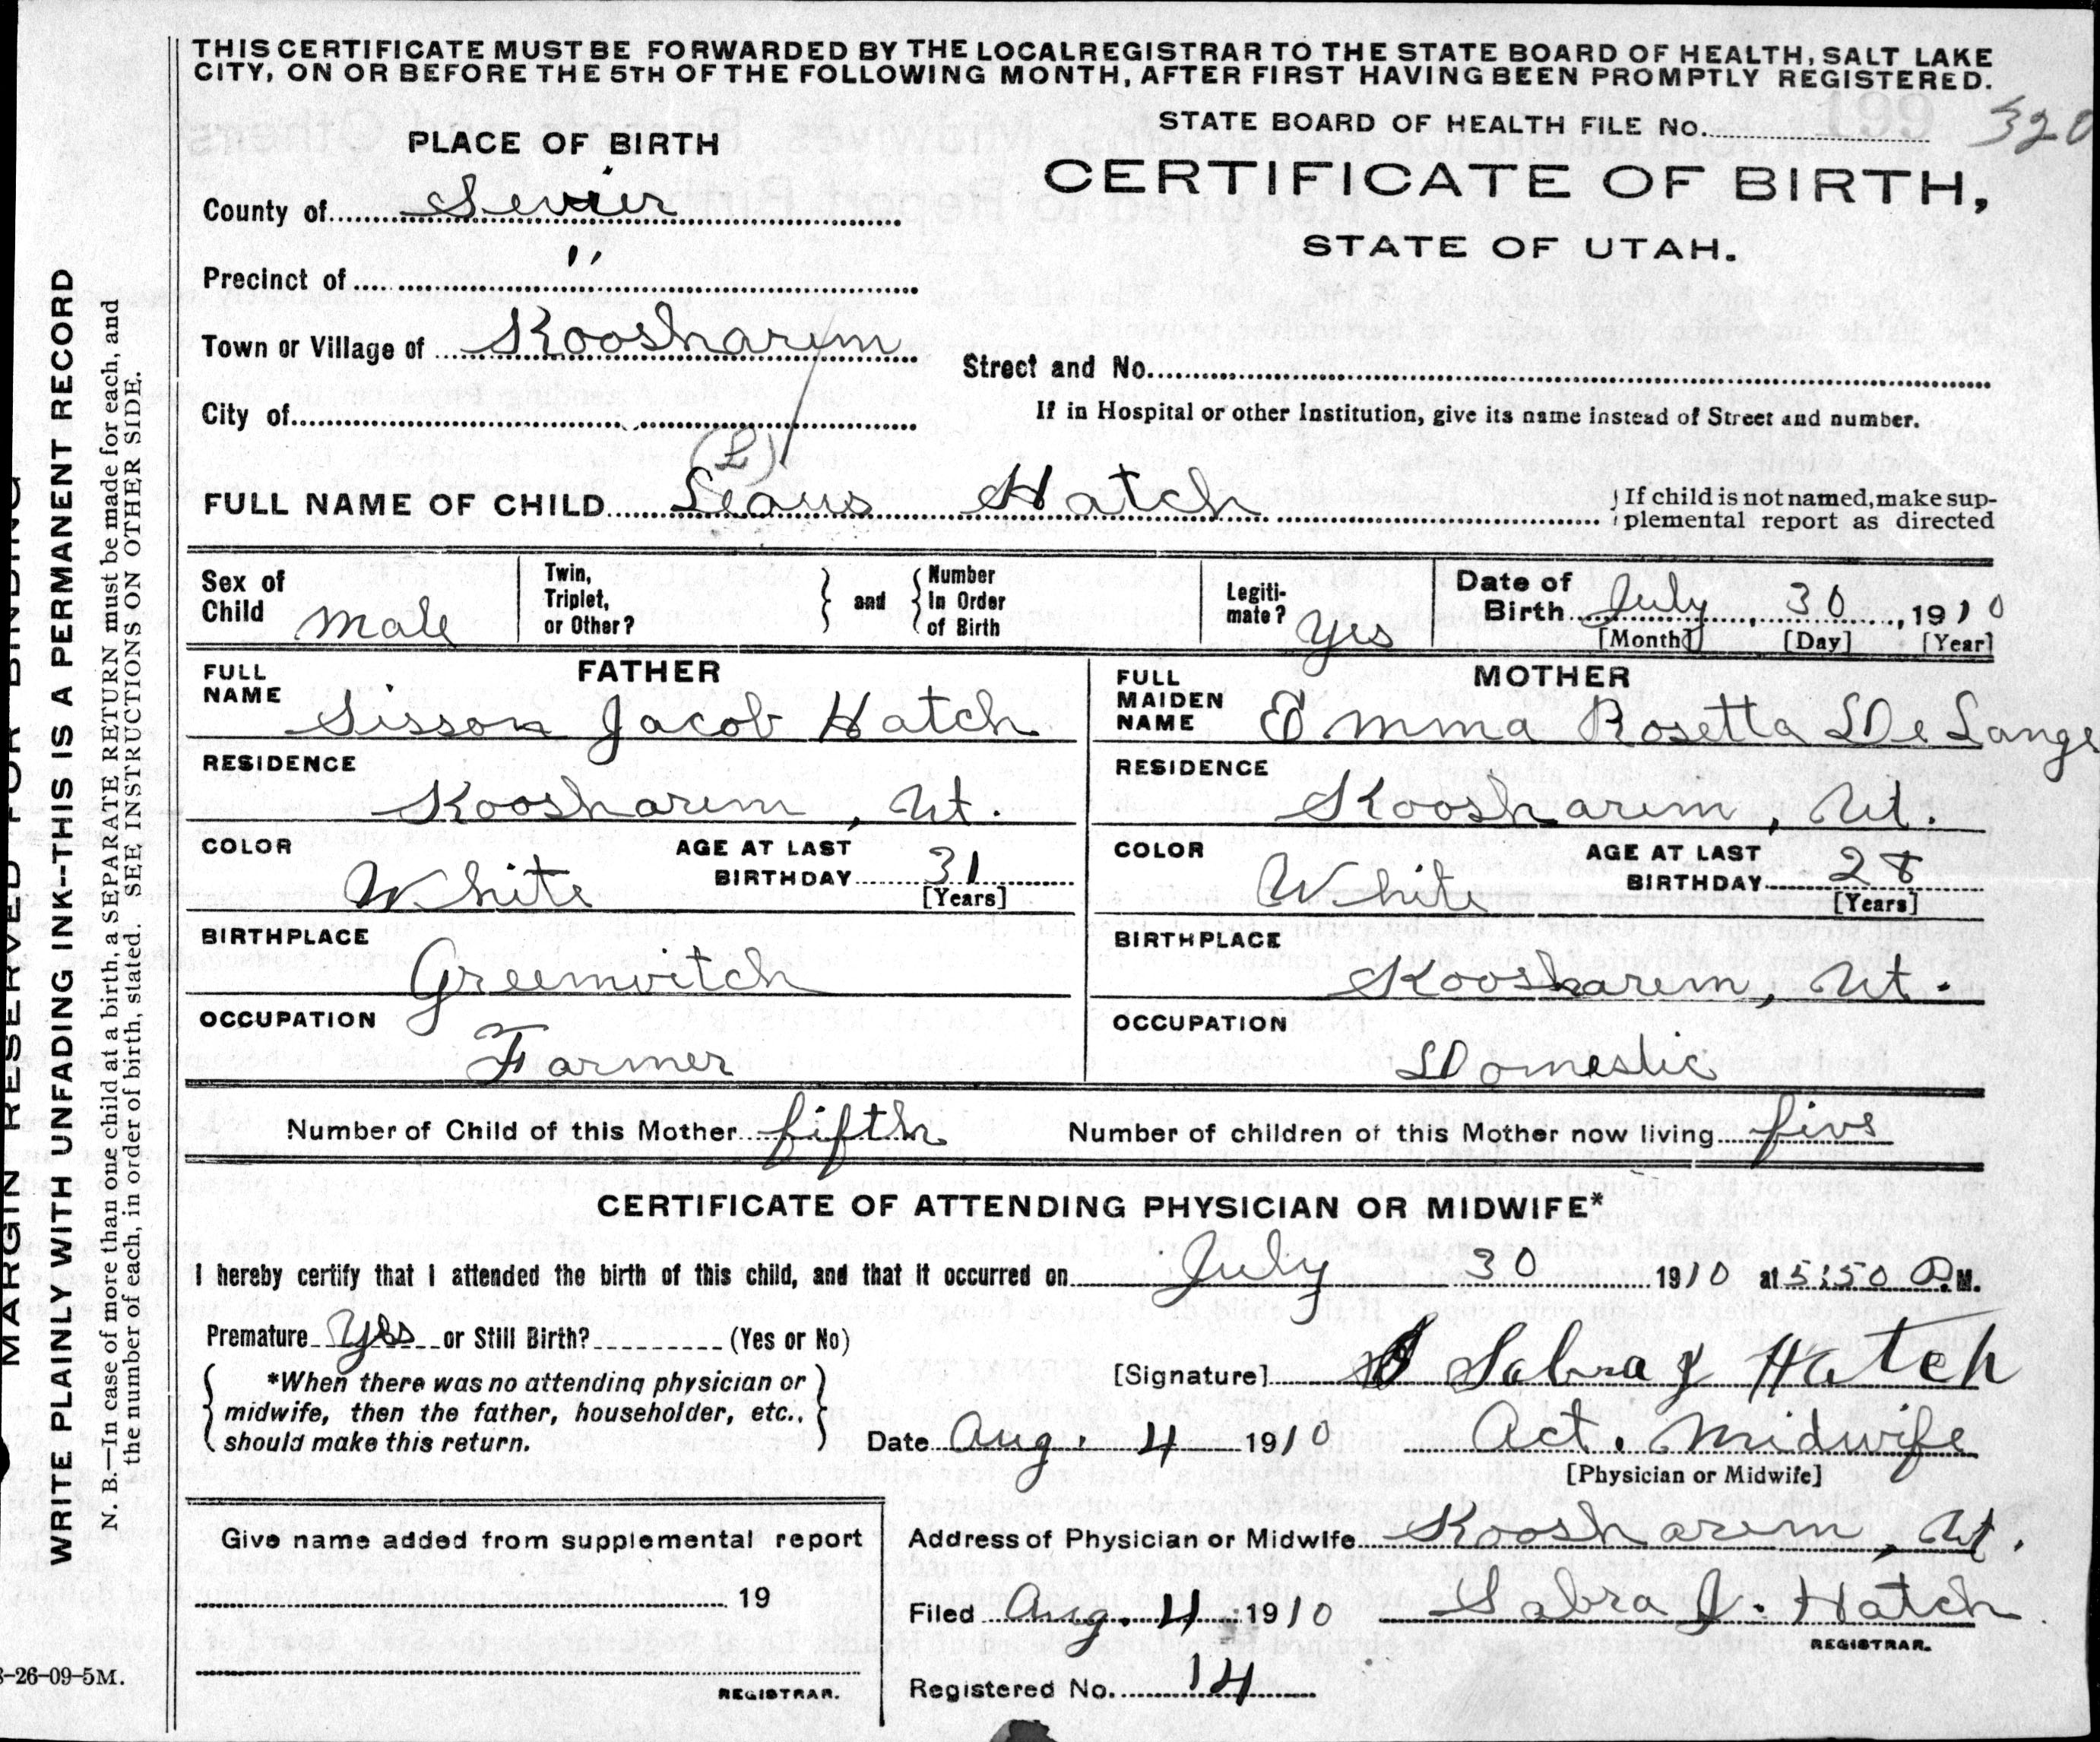 THIS CERTIFICATE MUST BE FORWARDED BY THE LOCAL REGISTRAR TO THE STATE BOARD OF HEALTH, SALT LAKE
CITY, ON OR BEFORE THE 5TH OF THE FOLLOWING MONTH, AFTER FIRST HAVING BEEN PROMPTLY REGISTERED.
STATE BOARD OF HEALTH FILE No. 320
PLACE OF BIRTH
CERTIFICATE OF BIRTH,
STATE OF UTAH.
County of Sevier
Precinct of "
Town or Village of Koosharem
Street and No.
City of
If in Hospital or other Institution, give its name instead of Street and number.
(L)
FULL NAME OF CHILD Hatch
If child is not named, make sup-
plemental report as directed
Sex of Child male
Twin, Triplet, or Other? and Number In Order of Birth
Legiti-mate? yes
Date of Birth July 30, 1910
[Month] [Day] [Year]
FATHER
FULL NAME Sisson Jacob Hatch
RESIDENCE
Koosharem, Ut.
COLOR White AGE AT LAST BIRTHDAY 31
[Years]
BIRTHPLACE
Greenwitch
OCCUPATION
Farmer
MOTHER
FULL MAIDEN NAME Emma Rosetta De Lange
RESIDENCE
Koosharem, Ut.
COLOR White AGE AT LAST BIRTHDAY 28
[Years]
BIRTHPLACE
Koosharem, Ut.
OCCUPATION
Domestic
Number of Child of this Mother fifth Number of children of this Mother now living five
CERTIFICATE OF ATTENDING PHYSICIAN OR MIDWIFE*
I hereby certify that I attended the birth of this child, and that it occurred on July 30 1910 at 5:50 P.M.
Premature Yes or Still Birth? (Yes or No)
*When there was no attending physician or
midwife, then the father, householder, etc.,
should make this return.
[Signature] Sabra J Hatch
Date Aug. 4 1910 Act. Midwife
[Physician or Midwife]
Give name added from supplemental report
19
REGISTRAR.
Address of Physician or Midwife Koosharem, Ut.
Filed Aug. 4 1910 Sabra J. Hatch
REGISTRAR.
Registered No. 14
MARGIN RESERVED FOR BINDING
WRITE PLAINLY WITH UNFADING INK--THIS IS A PERMANENT RECORD
N. B.—In case of more than one child at a birth, a SEPARATE RETURN must be made for each, and
the number of each, in order of birth, stated. SEE INSTRUCTIONS ON OTHER SIDE.
-26-09-5M.